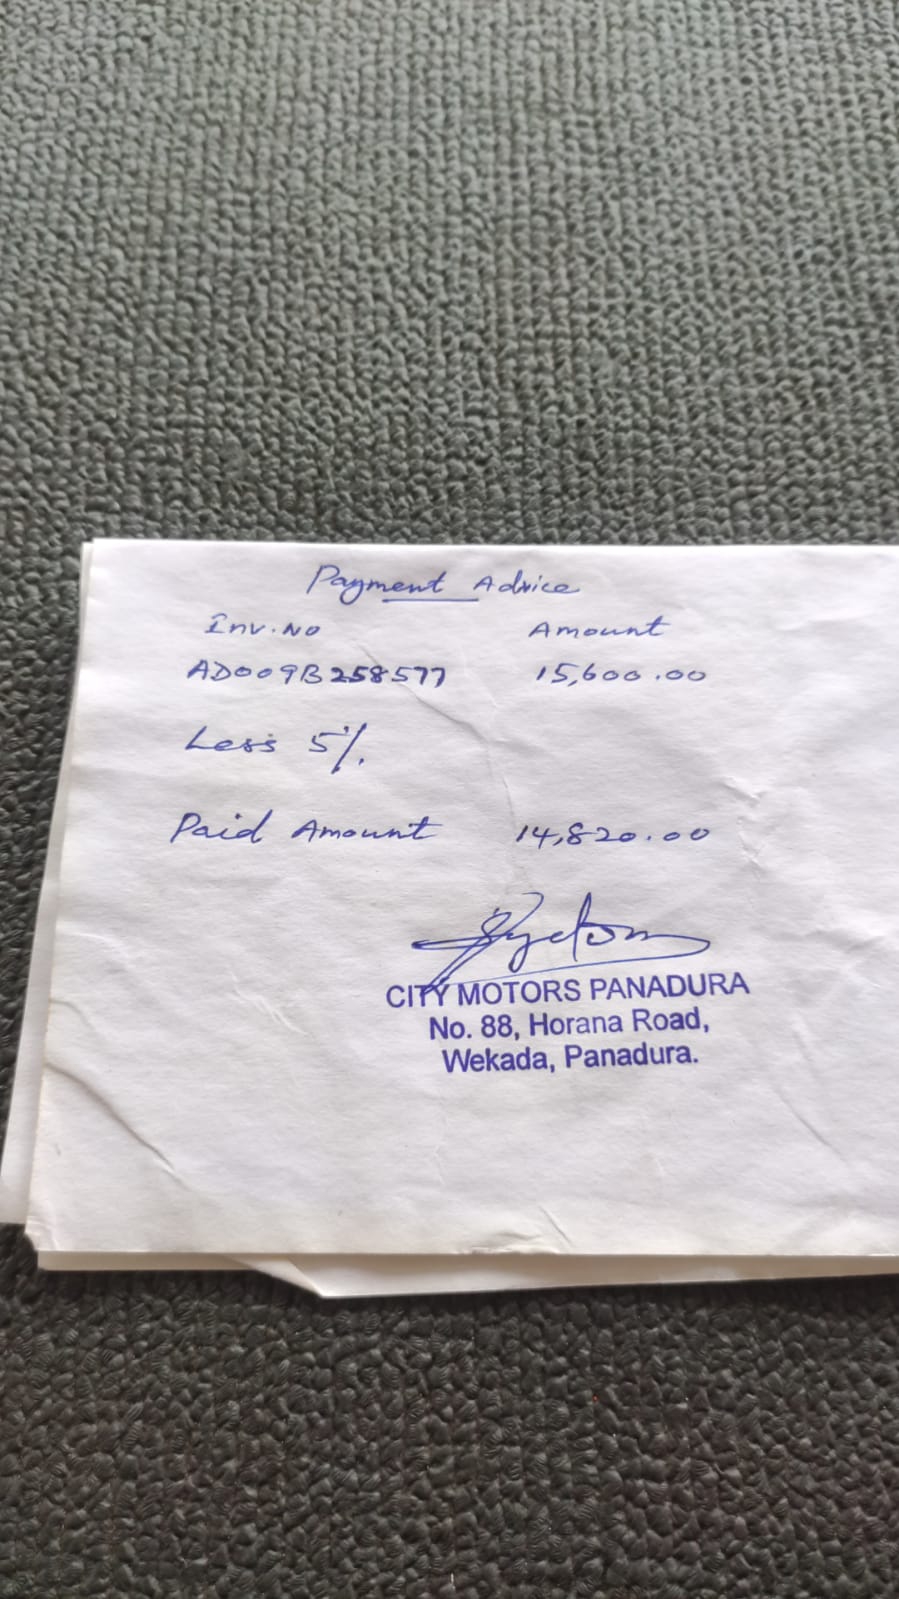 Payment Advice
Inv. No Amount
AD009B258577 15,600.00
Less 5%.
Paid Amount 14,820.00
CITY MOTORS PANADURA
No. 88, Horana Road,
Wekada, Panadura.